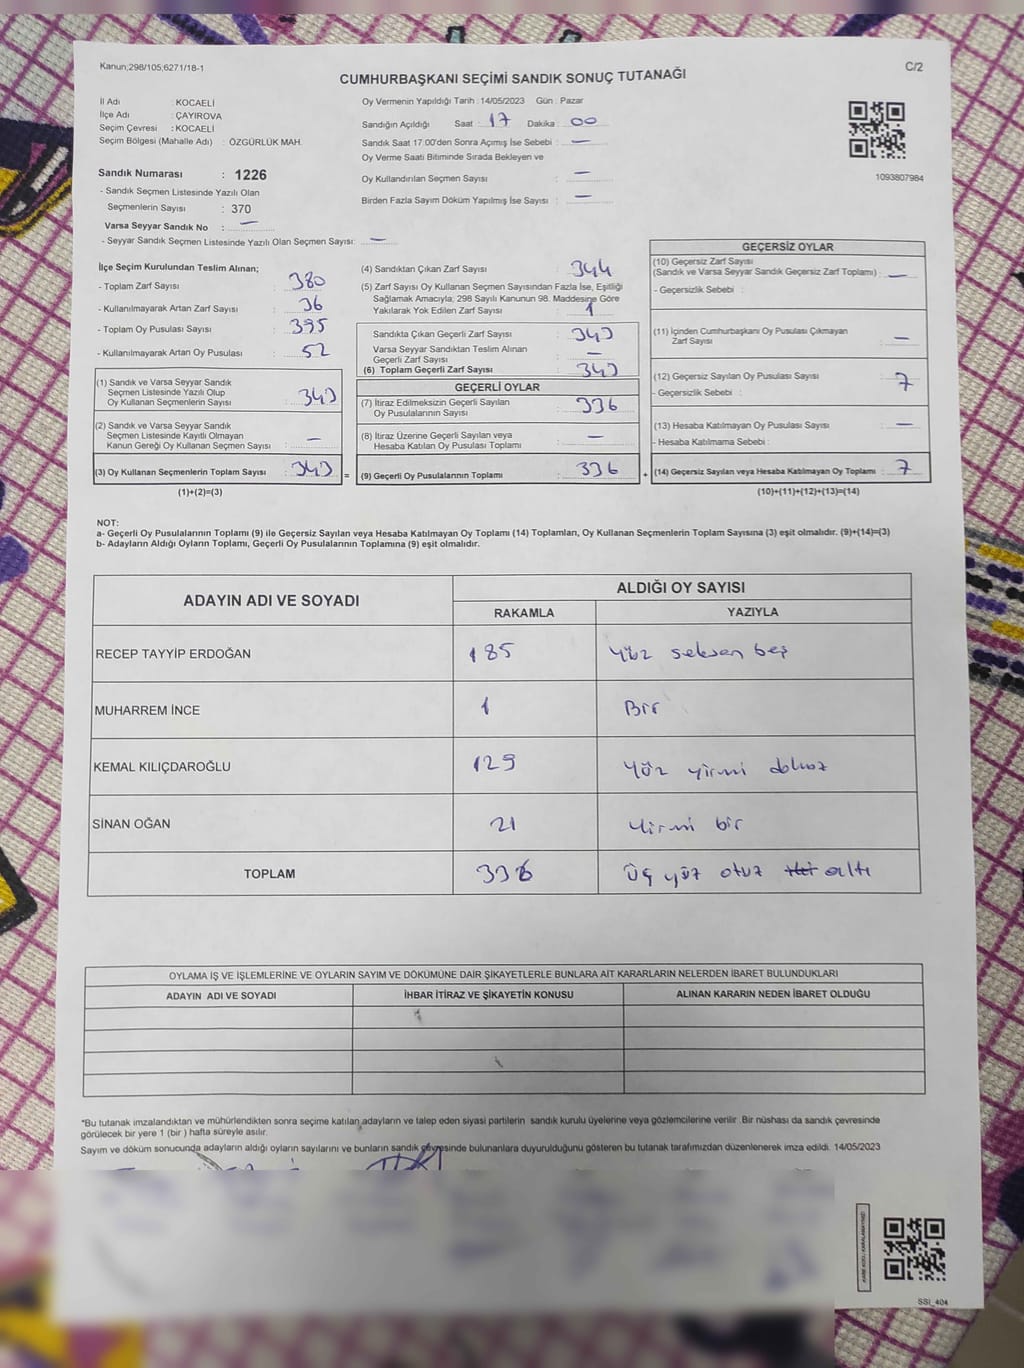 Kanun;298/105;6271/18-1
C/2
CUMHURBAŞKANI SEÇİMİ SANDIK SONUÇ TUTANAĞI
İl Adı : KOCAELİ
İlçe Adı : ÇAYIROVA
Seçim Çevresi : KOCAELİ
Seçim Bölgesi (Mahalle Adı) : ÖZGÜRLÜK MAH.
Sandık Numarası : 1226
- Sandık Seçmen Listesinde Yazılı Olan
Seçmenlerin Sayısı : 370
Varsa Seyyar Sandık No : —
- Seyyar Sandık Seçmen Listesinde Yazılı Olan Seçmen Sayısı: —
Oy Vermenin Yapıldığı Tarih : 14/05/2023 Gün : Pazar
Sandığın Açıldığı Saat : 17 Dakika : 00
Sandık Saat 17:00'den Sonra Açımış İse Sebebi : —
Oy Verme Saati Bitiminde Sırada Bekleyen ve
Oy Kullandırılan Seçmen Sayısı : —
Birden Fazla Sayım Döküm Yapılmış İse Sayısı : —
1093807984
İlçe Seçim Kurulundan Teslim Alınan;
- Toplam Zarf Sayısı : 380
- Kullanılmayarak Artan Zarf Sayısı : 36
- Toplam Oy Pusulası Sayısı : 395
- Kullanılmayarak Artan Oy Pusulası : 52
(1) Sandık ve Varsa Seyyar Sandık
Seçmen Listesinde Yazılı Olup
Oy Kullanan Seçmenlerin Sayısı : 343
(2) Sandık ve Varsa Seyyar Sandık
Seçmen Listesinde Kayıtlı Olmayan
Kanun Gereği Oy Kullanan Seçmen Sayısı : —
(3) Oy Kullanan Seçmenlerin Toplam Sayısı : 343 =
(1)+(2)=(3)
(4) Sandıktan Çıkan Zarf Sayısı : 344
(5) Zarf Sayısı Oy Kullanan Seçmen Sayısından Fazla İse, Eşitliği
Sağlamak Amacıyla; 298 Sayılı Kanunun 98. Maddesine Göre
Yakılarak Yok Edilen Zarf Sayısı : 1
Sandıkta Çıkan Geçerli Zarf Sayısı : 343
Varsa Seyyar Sandıktan Teslim Alınan
Geçerli Zarf Sayısı : —
(6) Toplam Geçerli Zarf Sayısı : 343
GEÇERLİ OYLAR
(7) İtiraz Edilmeksizin Geçerli Sayılan
Oy Pusulalarının Sayısı : 336
(8) İtiraz Üzerine Geçerli Sayılan veya
Hesaba Katılan Oy Pusulası Toplamı : —
(9) Geçerli Oy Pusulalarının Toplamı : 336 +
GEÇERSİZ OYLAR
(10) Geçersiz Zarf Sayısı
(Sandık ve Varsa Seyyar Sandık Geçersiz Zarf Toplamı) : —
- Geçersizlik Sebebi :
(11) İçinden Cumhurbaşkanı Oy Pusulası Çıkmayan
Zarf Sayısı : —
(12) Geçersiz Sayılan Oy Pusulası Sayısı : 7
- Geçersizlik Sebebi :
(13) Hesaba Katılmayan Oy Pusulası Sayısı : —
- Hesaba Katılmama Sebebi :
(14) Geçersiz Sayılan veya Hesaba Katılmayan Oy Toplamı : 7
(10)+(11)+(12)+(13)=(14)
NOT:
a- Geçerli Oy Pusulalarının Toplamı (9) ile Geçersiz Sayılan veya Hesaba Katılmayan Oy Toplamı (14) Toplamları, Oy Kullanan Seçmenlerin Toplam Sayısına (3) eşit olmalıdır. (9)+(14)=(3)
b- Adayların Aldığı Oyların Toplamı, Geçerli Oy Pusulalarının Toplamına (9) eşit olmalıdır.
ADAYIN ADI VE SOYADI ALDIĞI OY SAYISI
RAKAMLA YAZIYLA
RECEP TAYYİP ERDOĞAN 185 Yüz seksen beş
MUHARREM İNCE 1 Bir
KEMAL KILIÇDAROĞLU 129 Yüz yirmi dokuz
SİNAN OĞAN 21 Yirmi bir
TOPLAM 336 Üç yüz otuz altı
OYLAMA İŞ VE İŞLEMLERİNE VE OYLARIN SAYIM VE DÖKÜMÜNE DAİR ŞİKAYETLERLE BUNLARA AİT KARARLARIN NELERDEN İBARET BULUNDUKLARI
ADAYIN ADI VE SOYADI İHBAR İTİRAZ VE ŞİKAYETİN KONUSU ALINAN KARARIN NEDEN İBARET OLDUĞU
*Bu tutanak imzalandıktan ve mühürlendikten sonra seçime katılan adayların ve talep eden siyasi partilerin sandık kurulu üyelerine veya gözlemcilerine verilir. Bir nüshası da sandık çevresinde
görülecek bir yere 1 (bir ) hafta süreyle asılır.
Sayım ve döküm sonucunda adayların aldığı oyların sayılarını ve bunların sandık çevresinde bulunanlara duyurulduğunu gösteren bu tutanak tarafımızdan düzenlenerek imza edildi. 14/05/2023
SSI_404